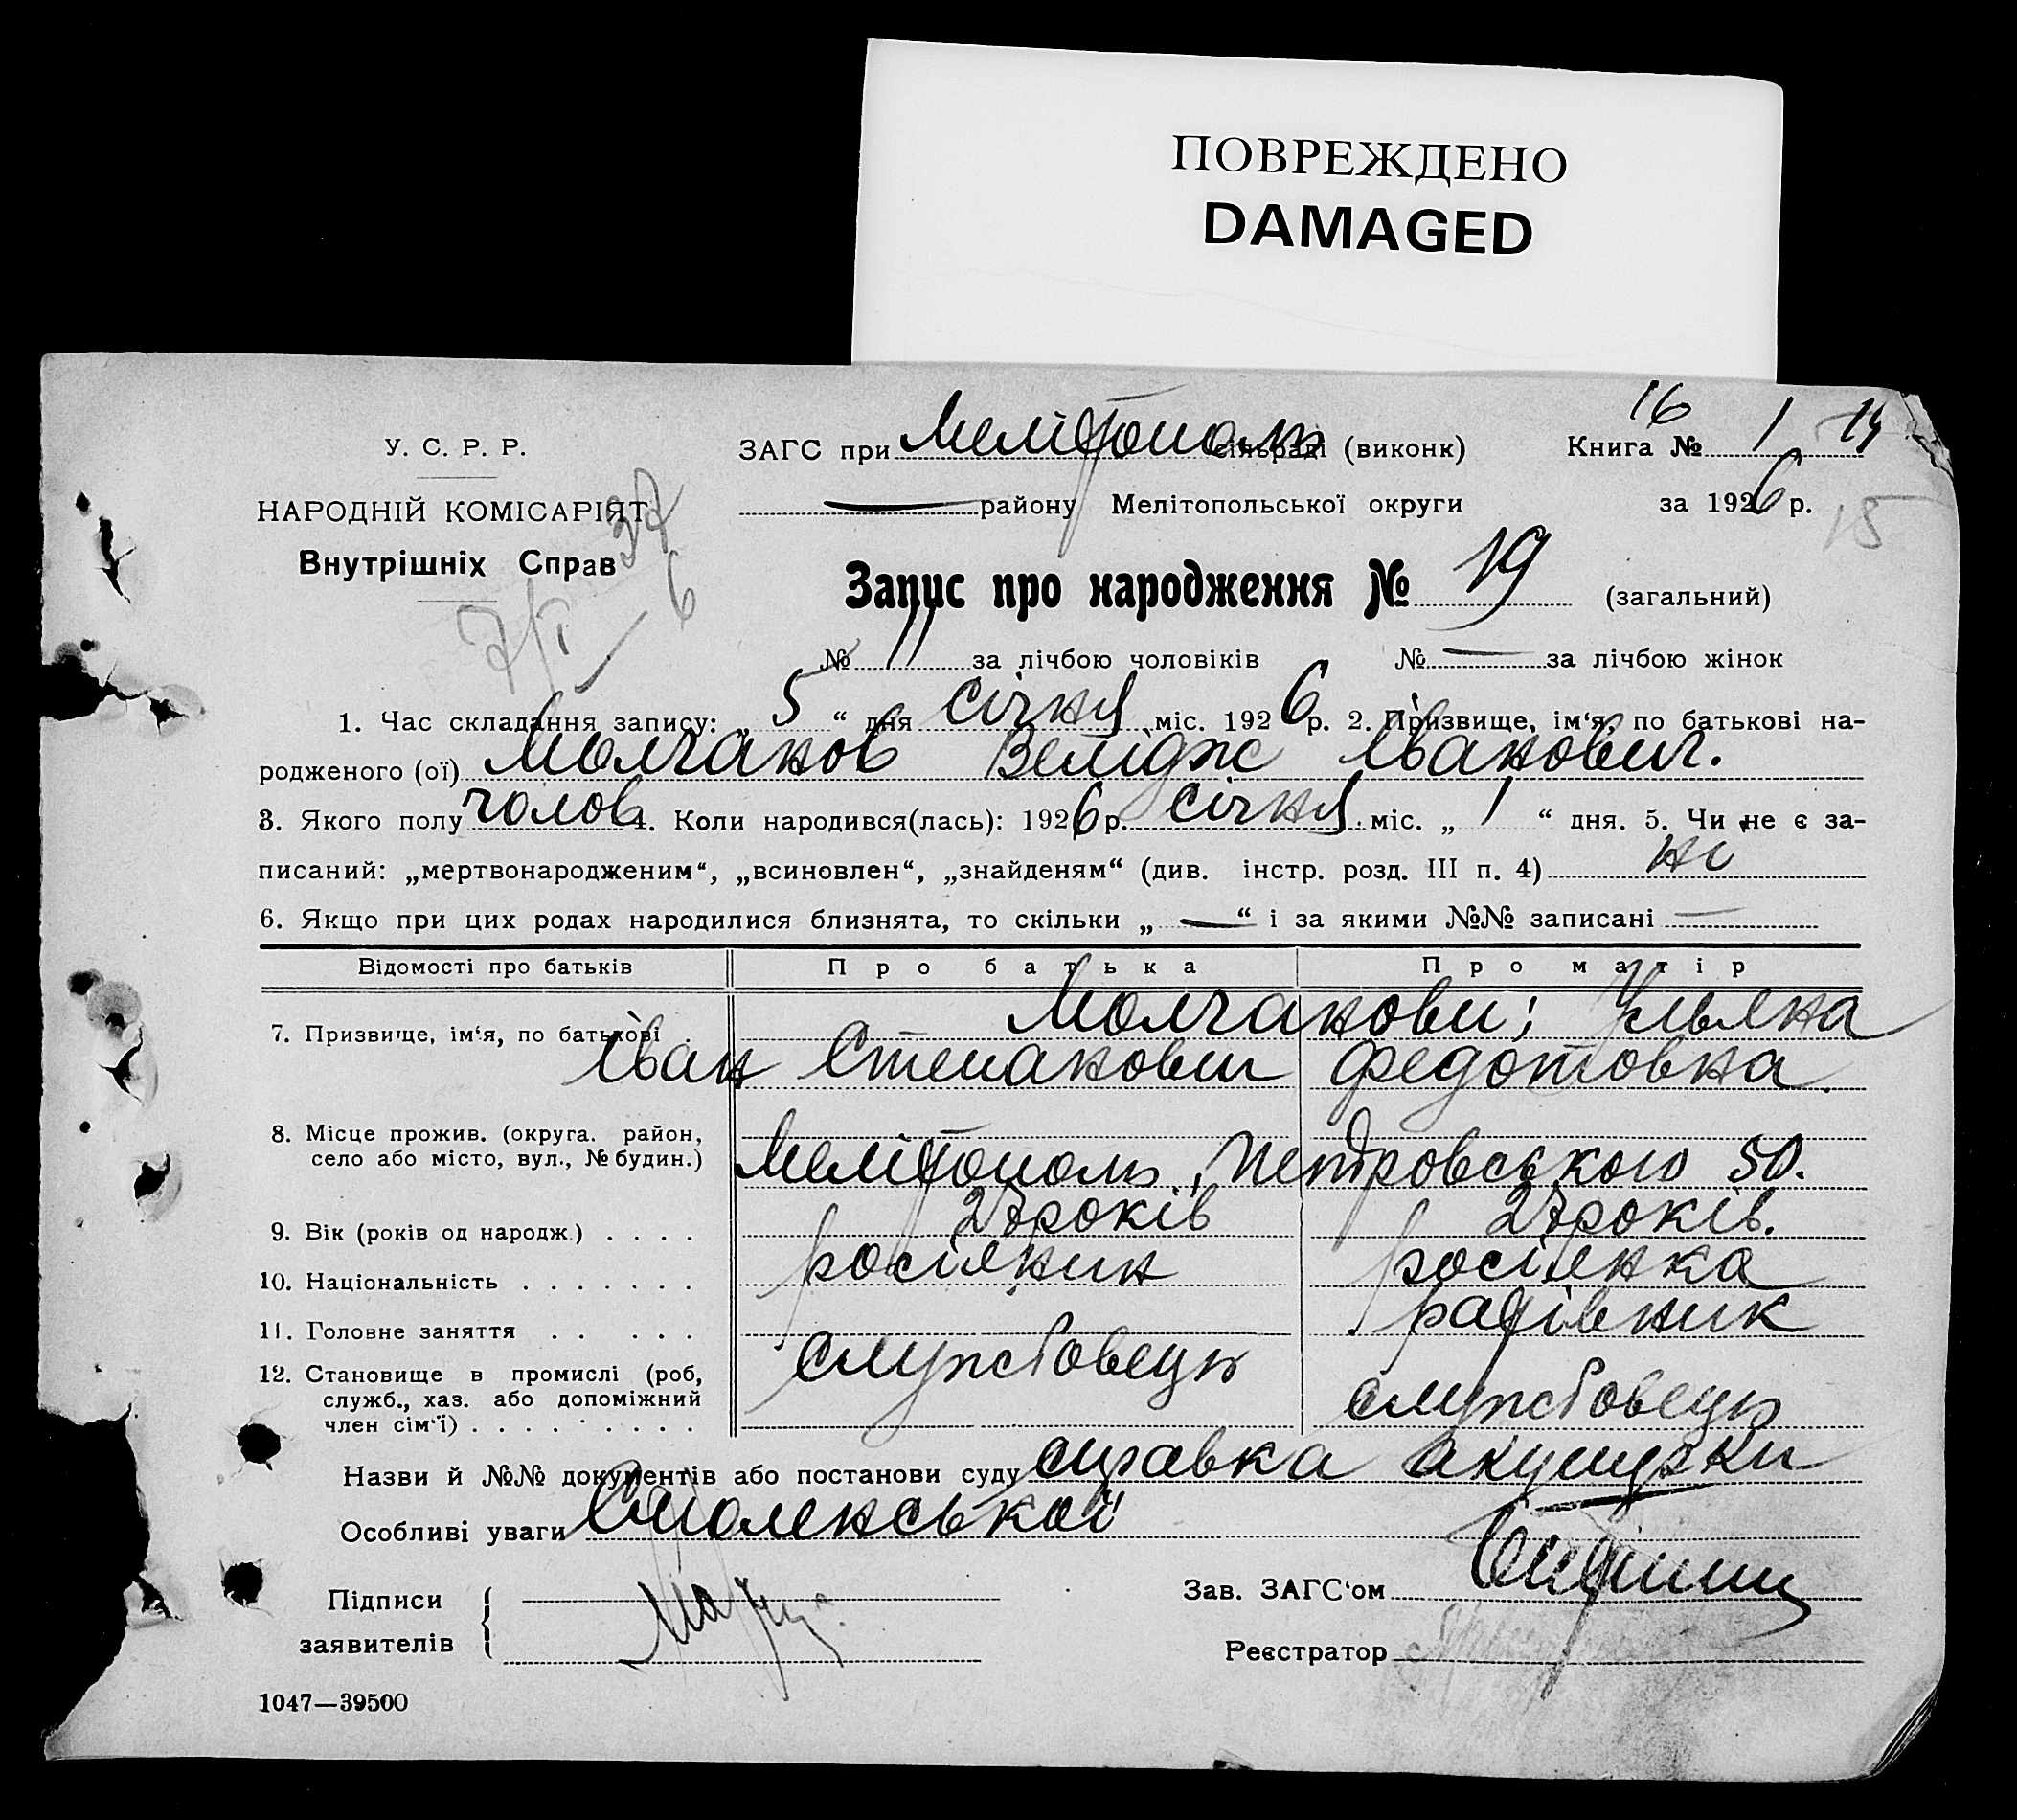 ПОВРЕЖДЕНО
DAMAGED
16
У. С. Р. Р.
ЗАГС при Мелітополь сільраді (виконк) Книга № 1 14
НАРОДНІЙ КОМІСАРІЯТ
району Мелітопольської округи за 1926 р. 15
Внутрішніх Справ
37
6
Запис про народження № 19 (загальний)
№ 11 за лічбою чоловіків № — за лічбою жінок
1. Час складання запису: „ 5 “ дня січня міс. 1926 р. 2. Призвище, ім‘я, по батькові на-
родженого (ої) Молчанов Велідж Іванович.
3. Якого полу чолов 4. Коли народився(лась): 1926 р. січня міс. „ 1 “ дня. 5. Чи не є за-
писаний: „мертвонародженим“, „всиновлен“, „знайденям“ (див. інстр. розд. III п. 4) ні
6. Якщо при цих родах народилися близнята, то скільки „ — “ і за якими №№ записані —
Відомості про батьків Про батька Про матір
7. Призвище, ім‘я, по батькові Молчанови; Ульяна
Іван Степанович Федотовна
8. Місце прожив. (округа. район,
село або місто, вул., № будин.) Мелітополь, Петровського 50.
9. Вік (років од народж.) . . . . 27 років 27 років.
10. Національність . . . . . . . росіянин росіянка
11. Головне заняття . . . . . рахівник
12. Становище в промислі (роб, службовець
служб., хаз. або допоміжний службовець
член сім‘ї) . . . . . . . .
Назви й №№ документів або постанови суду справка акушерки
Особливі уваги Смоленської
Підписи
Зав. ЗАГС‘ом
заявителів
Реєстратор
1047—39500